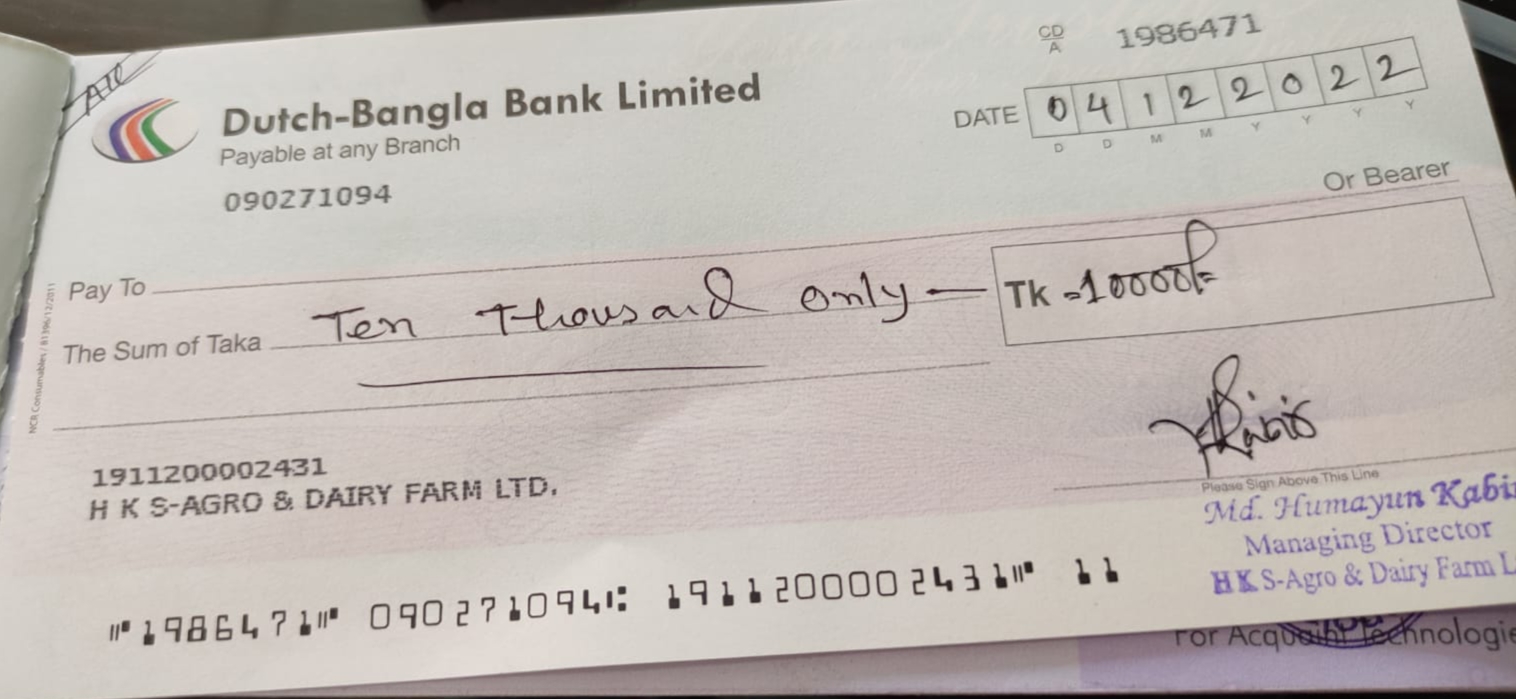 CD
A
1986471
Dutch-Bangla Bank Limited
Payable at any Branch
090271094
DATE 0 4 1 2 2 0 2 2
D D M M Y Y Y Y
Or Bearer
Pay To
The Sum of Taka Ten Thousand only —
Tk =10000/=
NCR Consumables / 81396/12/2011
1911200002431
H K S-AGRO & DAIRY FARM LTD.
Please Sign Above This Line
Md. Humayun Kabi
Managing Director
HKS-Agro & Dairy Farm L
⑈1986471⑈ 090271094⑆ 1911200002431⑈ 11
For Acquaint Technologie